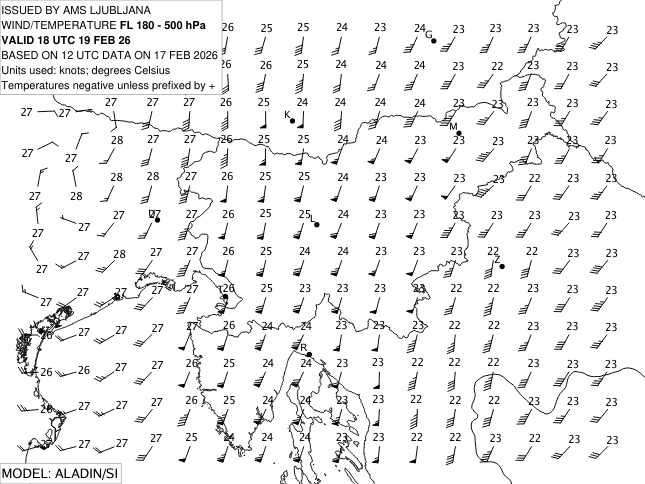 ISSUED BY AMS LJUBLJANA
WIND/TEMPERATURE FL 180 - 500 hPa
VALID 18 UTC 19 FEB 26
BASED ON 12 UTC DATA ON 17 FEB 2026
Units used: knots; degrees Celsius
Temperatures negative unless prefixed by +
26 25 24 24 23 24 23 23 23 23 23
G
26 25 24 24 24 24 23 22 23 23 23
27 27 27 27 27 26 25 24 24 24 24 23 23 23 23 23
K
M
27 27 28 27 27 26 25 25 24 24 23 23 23 23 23 23
28 28 28 27 26 25 25 24 23 23 23 23 22 23 23
27 27 27 26 25 25 24 23 23 23 23 23 23 23
L
27 27 28 27 27 26 25 24 24 23 23 23 22 22 23 23
Z
27 27 27 27 27 26 25 23 23 23 23 22 22 23 23 23
26 27 27 27 27 26 24 24 23 23 23 22 22 23 23 23
R
26 26 27 27 26 25 24 24 23 23 22 22 22 23 23 23
26 27 27 27 26 25 24 24 23 23 22 22 22 23 23 23
27 27 27 25 24 24 24 23 23 22 22 22 22 23 23
MODEL: ALADIN/SI